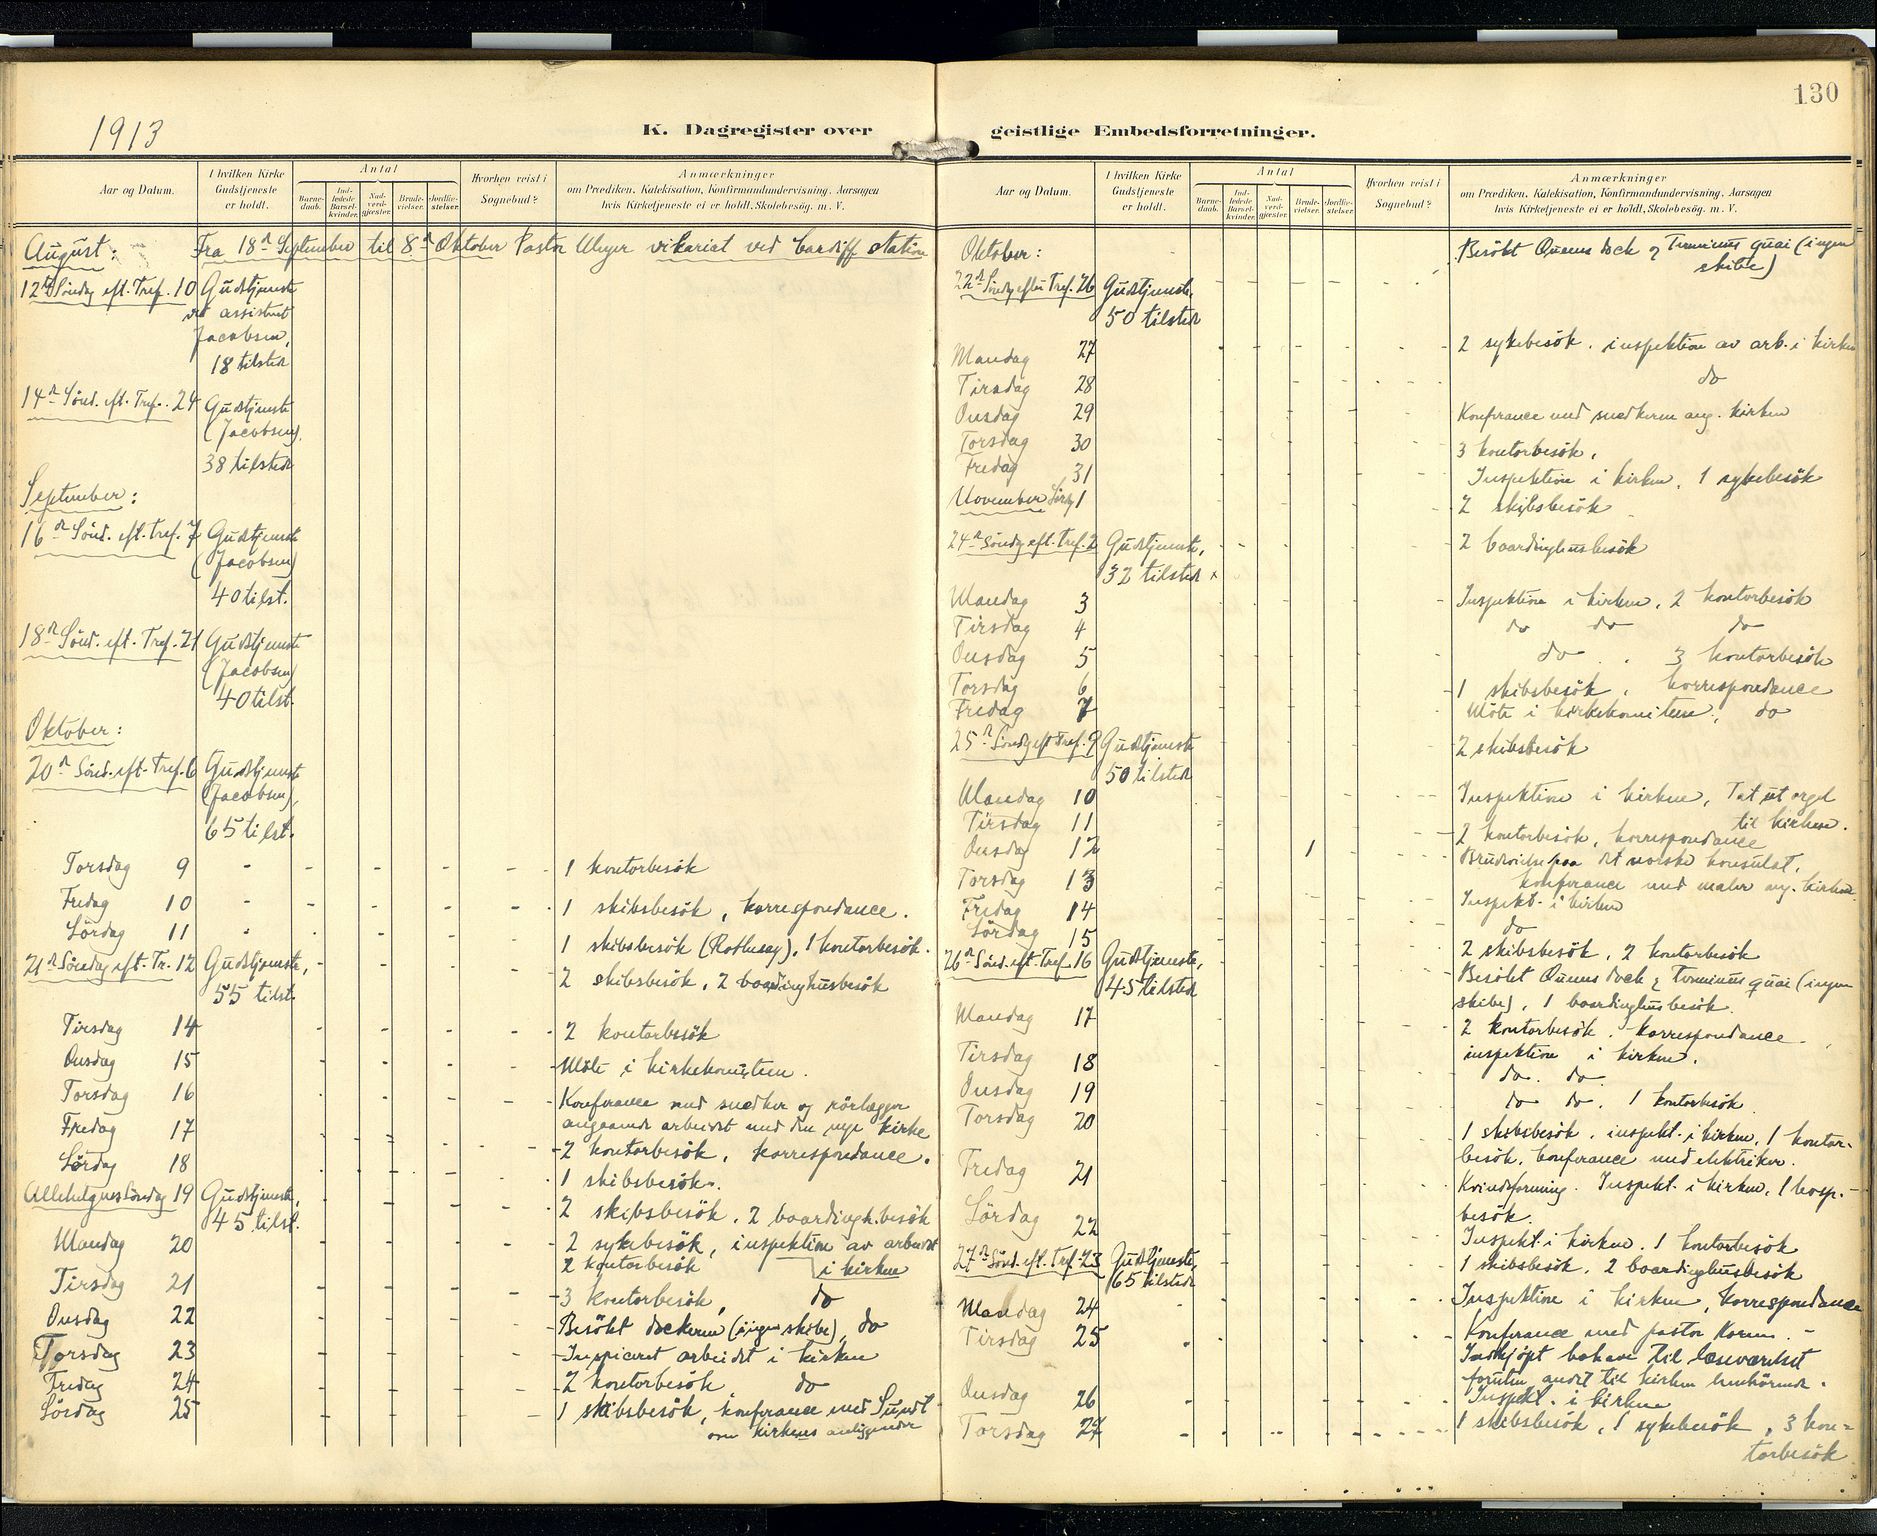 130
1913
K. Dagregister over geistlige Embedsforretninger.
Aar og Datum.
I hvilken Kirke Gudstjeneste er holdt.
Antal
Barnedaab.
Indledede Barselkvinder.
Nadverdgjester.
Brudevielser.
Jordfæstelser.
Hvorhen reist i Sognebud?
Anmærkninger
om Prædiken, Katekisation, Konfirmandundervisning, Aarsagen
hvis Kirketjeneste ei er holdt, Skolebesøg. m. V.
August: Fra 18de September til 8de Oktober Pastor Meyer vikariat ved Cardiff station
12te Söndag eft. Tref. 10 Gudstjeneste
ved assistent
Jacobsen,
18 tilsted
14de Sönd. eft. Tref. 24 Gudstjeneste
(Jacobsen).
38 tilsted
September:
16de Sönd. eft. Tref. 7 Gudstjeneste
(Jacobsen)
40 tilst.
18de Sönd. eft. Tref. 21 Gudstjeneste
(Jacobsen)
40 tilst.
Oktober:
20de Sönd. eft. Tref. 6 Gudstjeneste
(Jacobsen),
65 tilst.
Torsdag 9 - - - - - - 1 kontorbesök
Fredag 10 - - - - - - 1 skibsbesök, korrespondance.
Lördag 11 - - - - - 1 skibsbesök (Rothesay), 1 kontorbesök.
21de Söndag eft. Tr. 12 Gudstjeneste, 2 skibsbesök, 2 boardinghusbesök
55 tilst.
Tirsdag 14 2 kontorbesök
Onsdag 15 Möte i kirkekomiteen.
Torsdag 16 Konferance med snedker og rörlægger
angaaende arbeidet med den nye kirke
Fredag 17 2 kontorbesök, korrespondance.
Lördag 18 1 skibsbesök.
Allehelgnes Söndag 19 Gudstjeneste, 2 skibsbesök, 2 boardingh.besök
45 tilst.
Mandag 20 2 sykebesök, inspektion av arbeidet
i kirken
Tirsdag 21 2 kontorbesök
Onsdag 22 3 kontorbesök, do
Torsdag 23 Besökt dockerne (ingen skibe), do
Inspiceret arbeidet i kirken
Fredag 24 2 kontorbesök do
Lördag 25 1 skibsbesök, konferance med Sundt
om kirkens anliggender
Aar og Datum.
I hvilken Kirke Gudstjeneste er holdt.
Antal
Barnedaab.
Indledede Barselkvinder.
Nadverdgjester.
Brudevielser.
Jordfæstelser.
Hvorhen reist i Sognebud?
Anmærkninger
om Prædiken, Katekisation, Konfirmandundervisning, Aarsagen
hvis Kirketjeneste ei er holdt, Skolebesøg. m. V.
Oktober:
22de Söndag efter Tref. 26 Gudstjeneste, Besökt Queens dock og Terminus quai (ingen
skibe)
50 tilsted
Mandag 27 2 sykebesök, inspektion av arb. i kirken
Tirsdag 28 do
Onsdag 29 Konferance med snedkeren ang. kirken
Torsdag 30 3 kontorbesök,
Fredag 31 Inspektion i kirken, 1 sykebesök
November Lördag 1 2 skibsbesök
24de Söndag eft. Tref. 2 Gudstjeneste, 2 boardinghusbesök
32 tilsted
Mandag 3 Inspektion i kirken, 2 kontorbesök
Tirsdag 4 do do do
Onsdag 5 do 3 kontorbesök
Torsdag 6 1 skibsbesök, korrespondance
Fredag 7 Möte i kirkekomiteen, do
25de Söndag eft Tref. 9 Gudstjeneste 2 skibsbesök
50 tilsted
Mandag 10 Inspektion i kirken, Tat ut orgel
til kirken.
Tirsdag 11 2 kontorbesök, korrespondance
Onsdag 12 1 Brudevielse paa det norske konsulat,
konferance med maler ang. kirken
Torsdag 13 Inspekt. i kirken
Fredag 14 do
Lördag 15 2 skibsbesök, 2 kontorbesök
26de Sönd. eft. Tref 16 Gudstjeneste, Besökt Queens dock & Terminus quai (ingen
45 tilsted skibe), 1 boardinghusbesök.
Mandag 17 2 kontorbesök, korrespondance
inspektion i kirken.
Tirsdag 18 do. do.
Onsdag 19 do do. 1 kontorbesök
Torsdag 20 1 skibsbesök, inspekt. i kirken, 1 kontor-
besök, konferance med elektriker.
Fredag 21 Kvindeforening. Inspekt. i kirken, 1 hosp.-
besök.
Lördag 22 Inspekt. i kirken. 1 kontorbesök
27de Sönd. eft. Tref. 23 Gudstjeneste, 1 skibsbesök, 2 boardinghusbesök
65 tilsted
Mandag 24 Inspektion i kirken, korrespondance
Tirsdag 25 Konferance med pastor Koren.
Indkjöpt til læseværelset
foruten andet til kirken henhörende.
Onsdag 26 Inspekt. i kirken
Torsdag 27 1 skibsbesök, 1 sykebesök, 3 kon-
torbesök